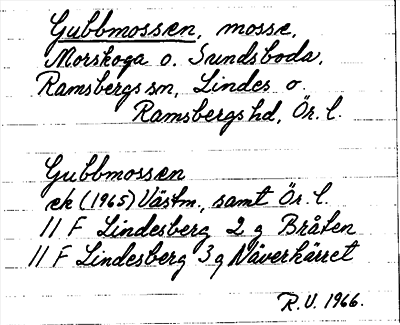 Gubbmossen, mosse,
Morskoga o. Sundsboda,
Ramsbergs sn, Lindes o.
Ramsbergs hd, Ör. l.
Gubbmossen
ek (1965) Västm., samt Ör. l.
11 F Lindesberg 2 g Bråten
11 F Lindesberg 3 g Näverkärret
R.V. 1966.